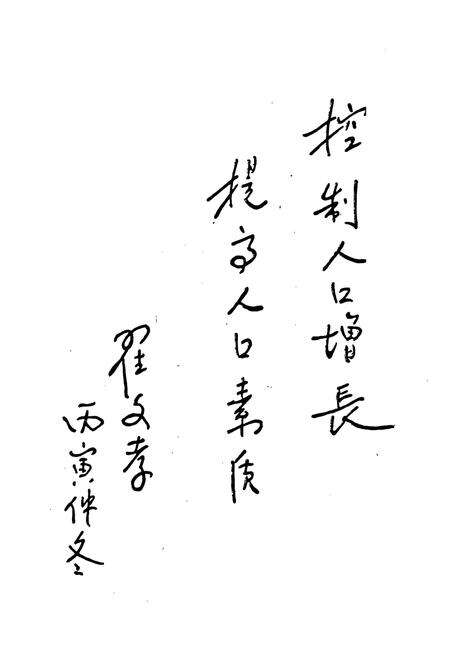 控制人口增長
提高人口素质
翟文孝
丙寅仲冬